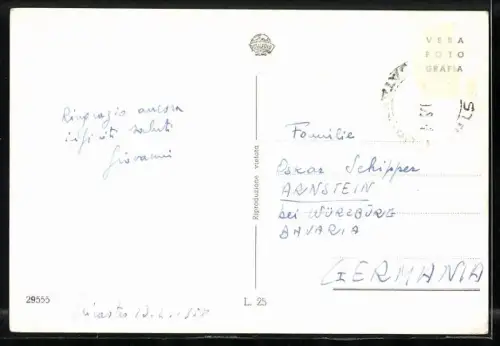 VERA
FOTO
GRAFIA
Ringrazio ancora
infiniti saluti
Giovanni
Riproduzione vietata
Familie
Oskar Schipper
ARNSTEIN
bei WÜRZBURG
BAVARIA
GERMANIA
29555
L. 25